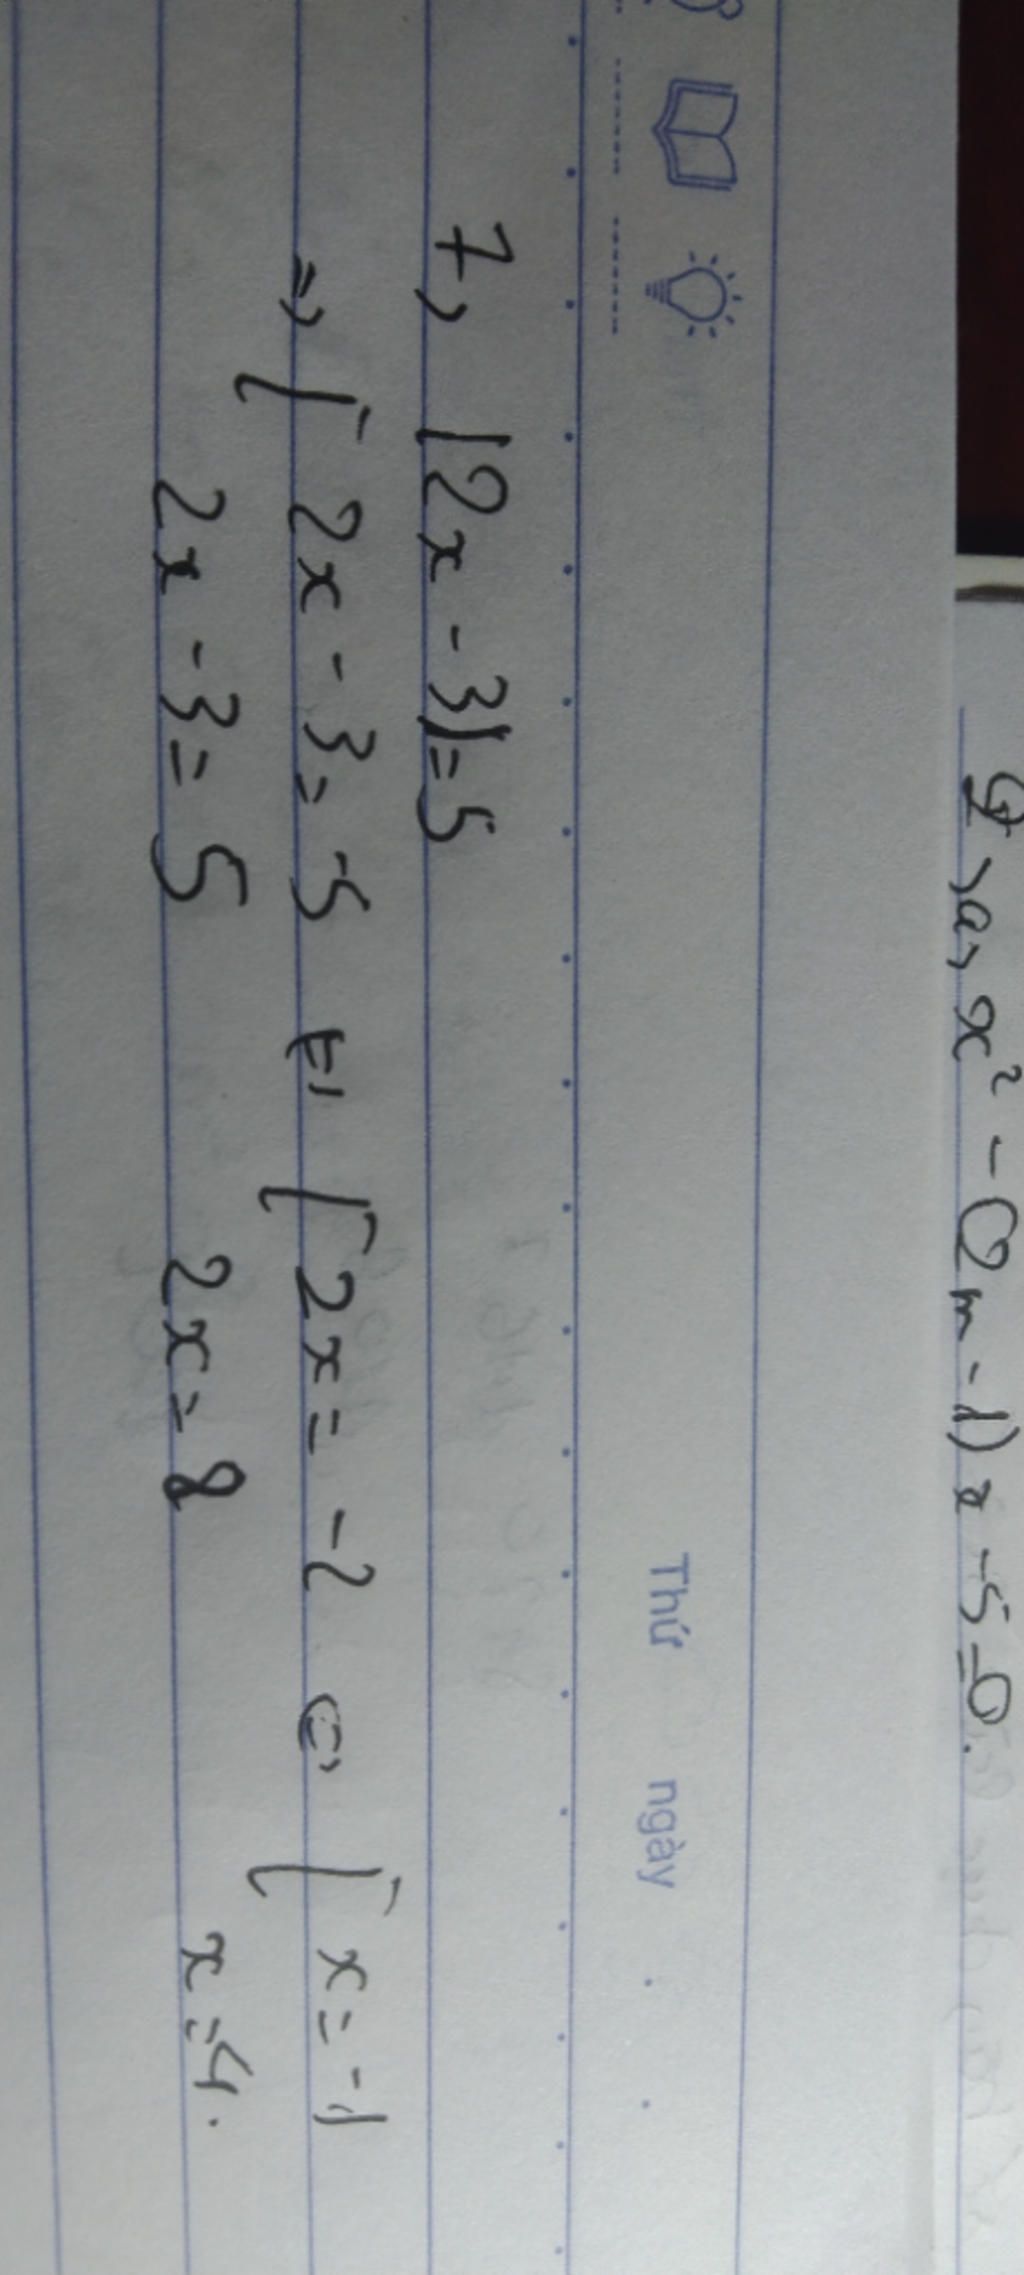 9, a, x² - (2m - 1) x - 5 = 0.
Thứ ngày . .
7, |2x - 3| = 5
=> [ 2x - 3 = -5 <=> [ 2x = -2 <=> [ x = -1
2x - 3 = 5 2x = 8 x = 4.